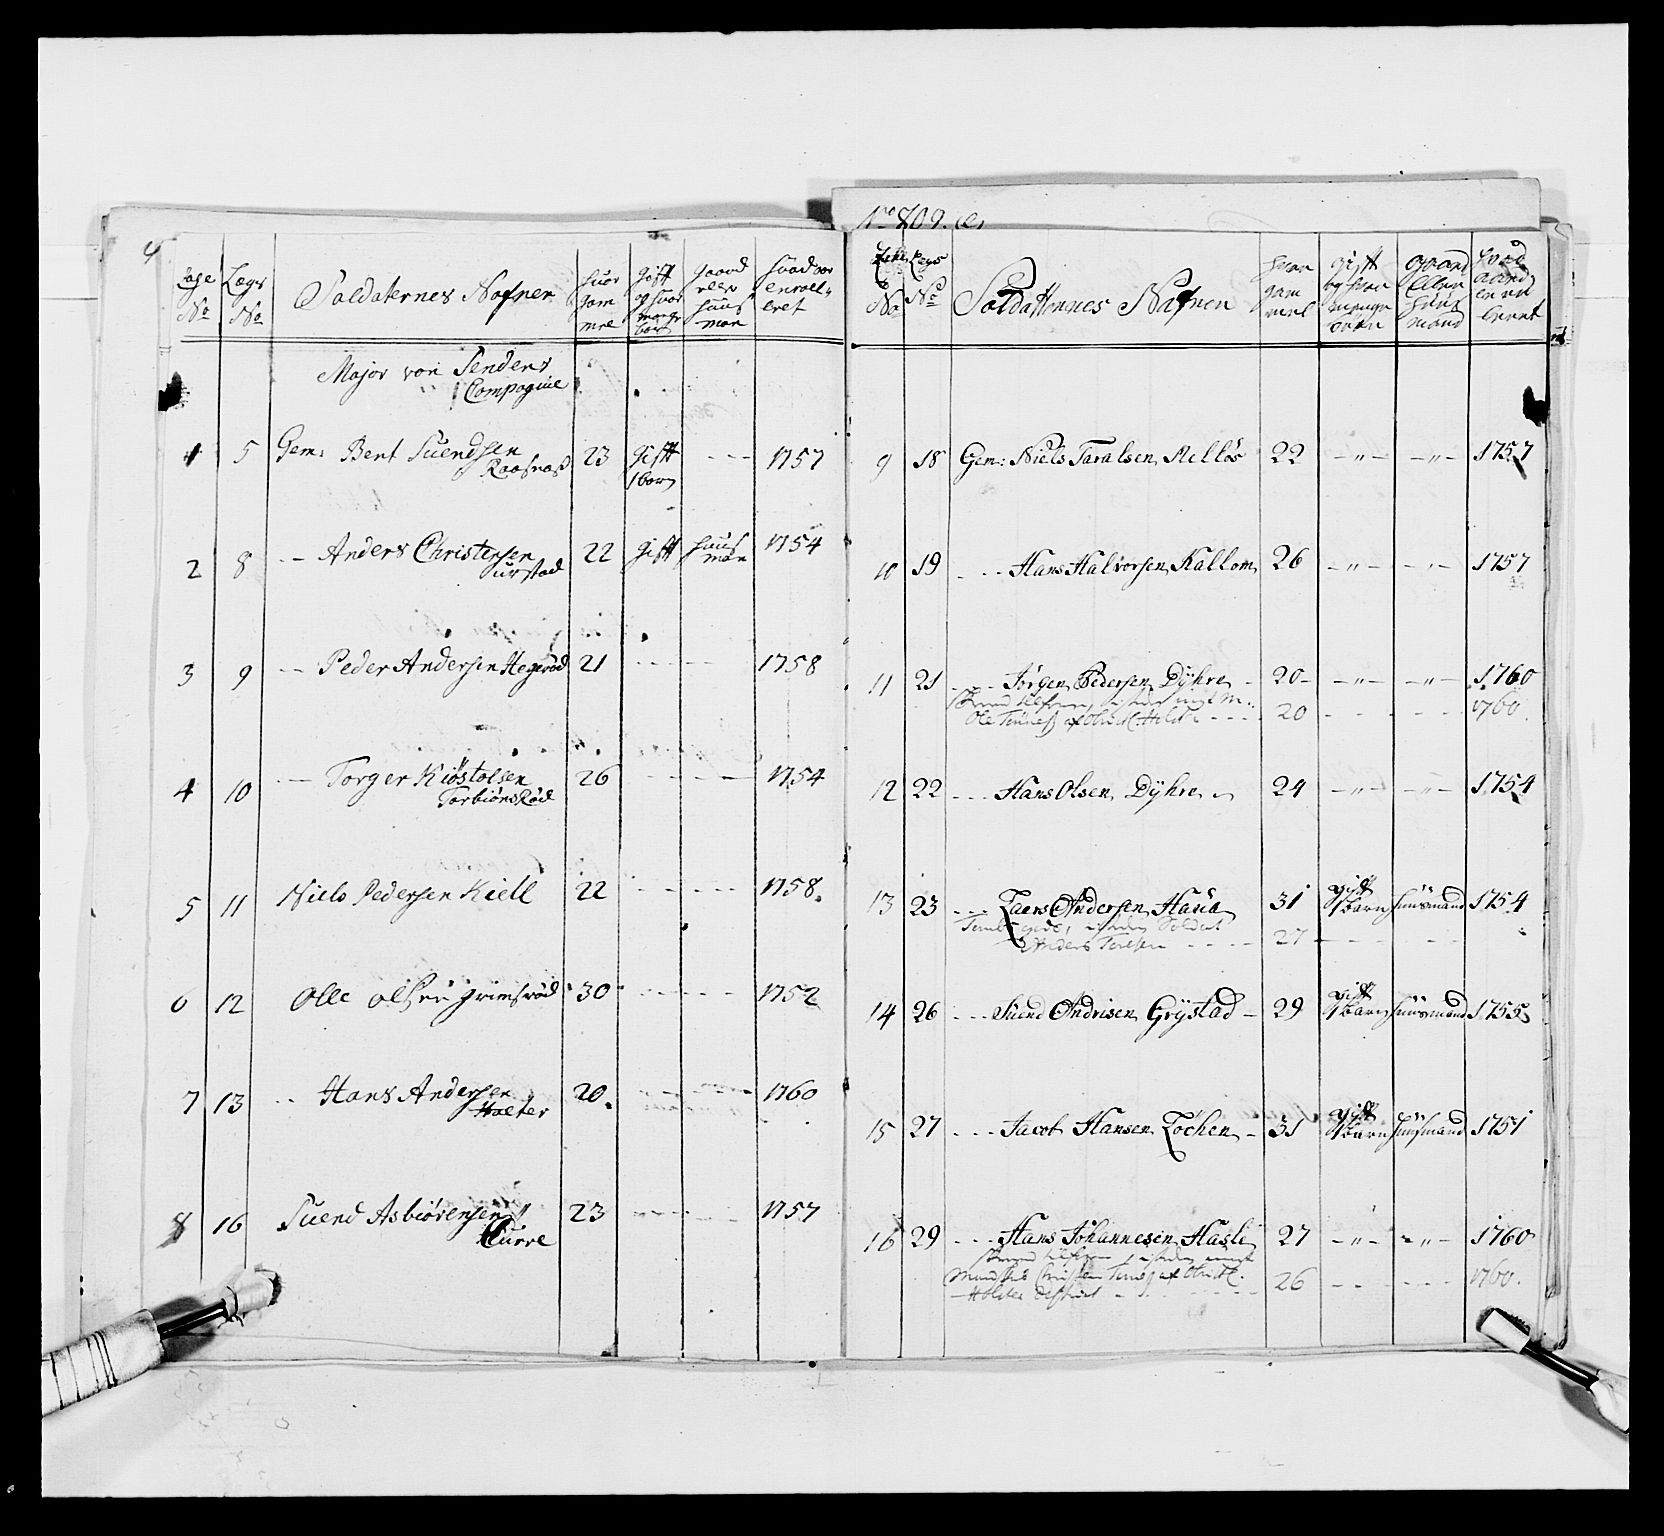 No 809. e
No
Lægs No
Soldaternes Nafner
huor gam mel
gift og huor mange børn
gaard eller huus man
huad aar enroll- eret
Major von Sendens
Compagnie
1 5 Gem: Bent Suendsen 23 gift - - - 1757
Raasnas 1 barn
2 8 - - Anders Christensen 22 gift huus man 1754
urstad
3 9 - - Peder Andersen Hegerød 21 - - - - - 1758
4 10 - - Torger Kiøstolsen 26 - - - - - 1754
TorbiønsRød
5 11 Niels Pedersen Kiell 22 - - - - - 1758.
6 12 Olle olsen grimsrød 30 - - - - - 1752
7 13 - - Hans Andersen 20. - - - - - 1760
Holter
8 16 Suend Asbiørensen 23 - - - - - 1757
Kurre
No
Lægs No
Soldatternes Nafner
hvor gam mel
gift og hvor mange børn
gaard eller huus mand
9 18 Gem: Niels Taralsen Melløs 22 - " - - " - 1757
10 19 - - - Hans Halvorsen Kallom 26 - " - - " - 1757
11 21 - - - Jørgen Pedersen Dÿhre - 20 - - " - - " - 1760
20 - - - - - 1760.
12 22 - - - Hans Olsen Dÿhre 24 - " - - " - 1754
13 23 - - - Laers Andersen Haua 31 gift 1 barn huusmand 1754
Anders - - - - 27 - - - - -
14 26 - - - Suend Andrisen Grÿstad - 29 gift 1 barn huusmand 1755
15 27 - - - Jacob Hansen Løchen - 31 gift 1 barn huusmand 1751
16 29 - - - Hans Johannesen Hasle 27 - " - - " - 1760
26 - - - - - 1760.